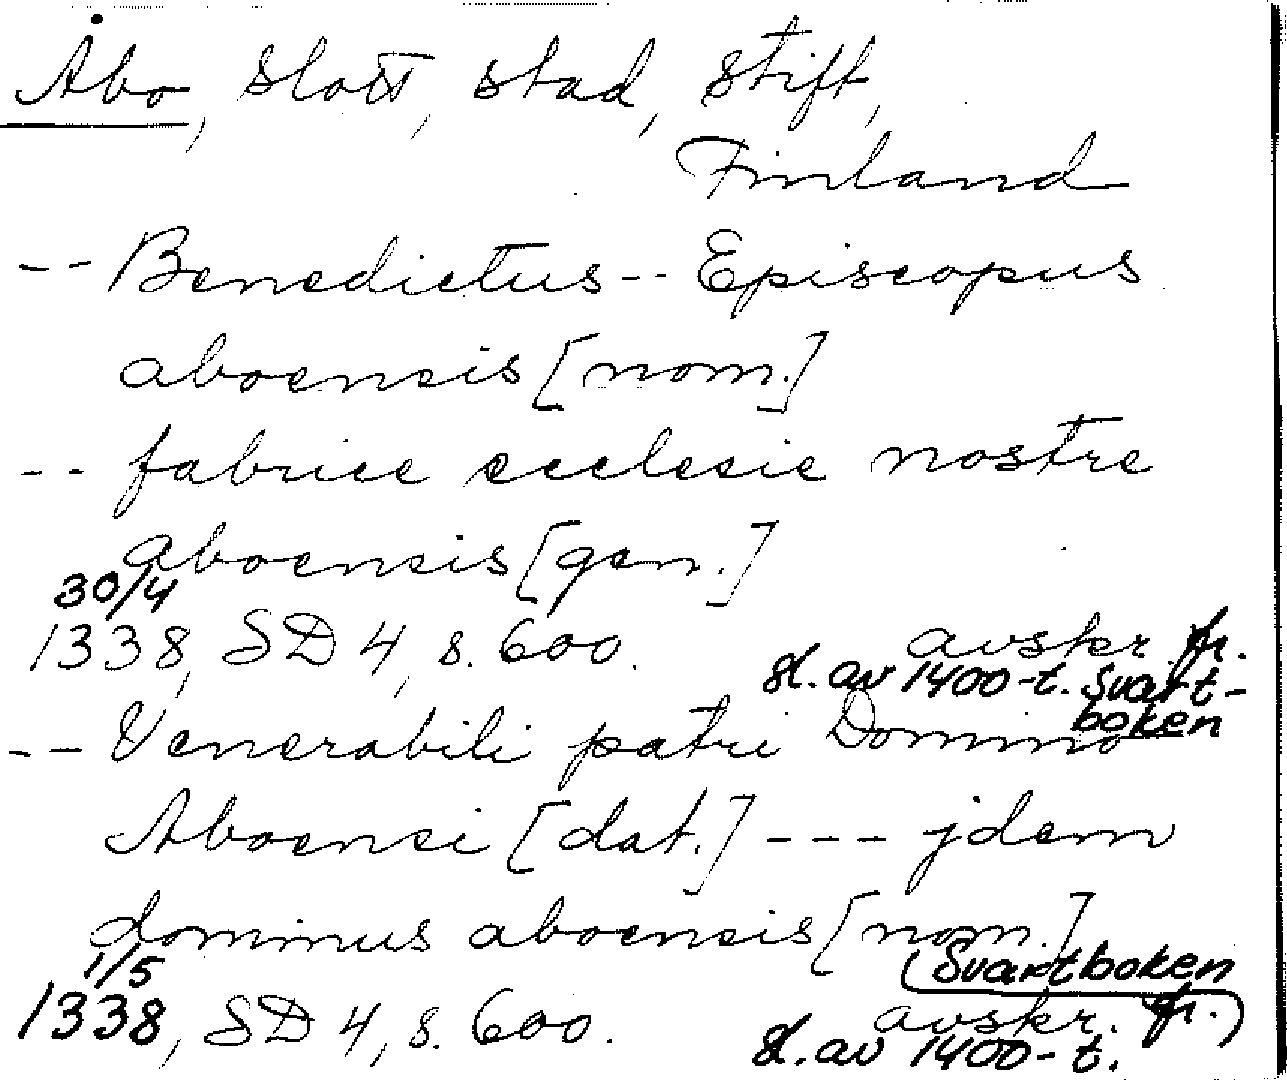 Åbo, slott, stad, stift,
Finland
-- Benedictus -- Episcopus
aboensis [nom.]
-- fabrice ecclesie nostre
aboensis [gen.]
30/4
1338, SD 4, s. 600. avskr. fr.
sl. av 1400-t. Svart-
boken
-- Venerabili patri Domino
Aboensi [dat.] --- jdem
dominus aboensis [nom.]
1/5 (Svartboken)
1338, SD 4, s. 600. avskr. fr.
sl. av 1400-t.